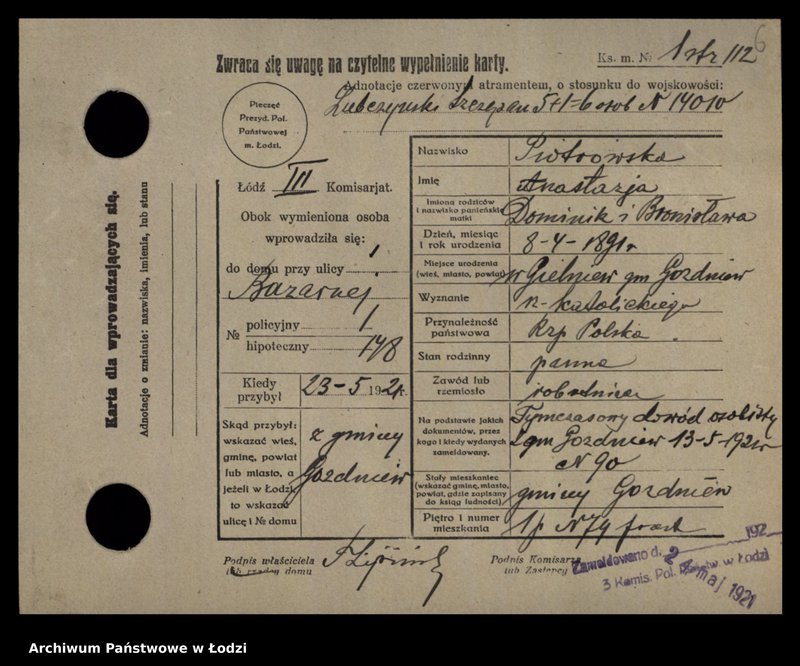 6
Zwraca się uwagę na czytelne wypełnienie karty.
Ks. m. № 1 str 112
Adnotacje czerwonym atramentem, o stosunku do wojskowości:
Szczepan 5+1-6 osób N 14010
Pieczęć
Prezyd. Pol.
Państwowej
m. Łodzi.
Łódź III Komisarjat.
Obok wymieniona osoba
wprowadziła się:
do domu przy ulicy
Bazarnej
№ policyjny 1
hipoteczny 148
Kiedy przybył 23-5 1921
Skąd przybył:
wskazać wieś,
gminę, powiat
lub miasto, a
jeżeli w Łodzi,
to wskazać
ulicę i № domu
z gminy
Gozdniew
Nazwisko Piotrowska
Imię Anastazja
Imiona rodziców
i nazwisko panieńskie
matki
Dominik i Bronisława
Dzień, miesiąc
i rok urodzenia
8-4-1891 r
Miejsce urodzenia
(wieś, miasto, powiat)
w Gielniew gm Gozdniew
Wyznanie r-katolickiego
Przynależność
państwowa
Rzp Polska
Stan rodzinny panna
Zawód lub
rzemiosło
robotnica
Na podstawie jakich
dokumentów, przez
kogo i kiedy wydanych
zameldowany.
Tymczasowy dowód osobisty
gm Gozdniew 13-5-1921 r
N 90
Stały mieszkaniec
(wskazać gminę, miasto,
powiat, gdzie zapisany
do ksiąg ludności)
gminy Gozdniew
Piętro i numer
mieszkania
1 p N 74 front
Podpis właściciela
lub rządcy domu
Podpis Komisarza
lub Zastępcy
192
Zameldowano d. 2 maj 1921
3 Komis. Pol. Państw w Łodzi
Karta dla wprowadzających się.
Adnotacje o zmianie: nazwiska, imienia, lub stanu
Archiwum Państwowe w Łodzi